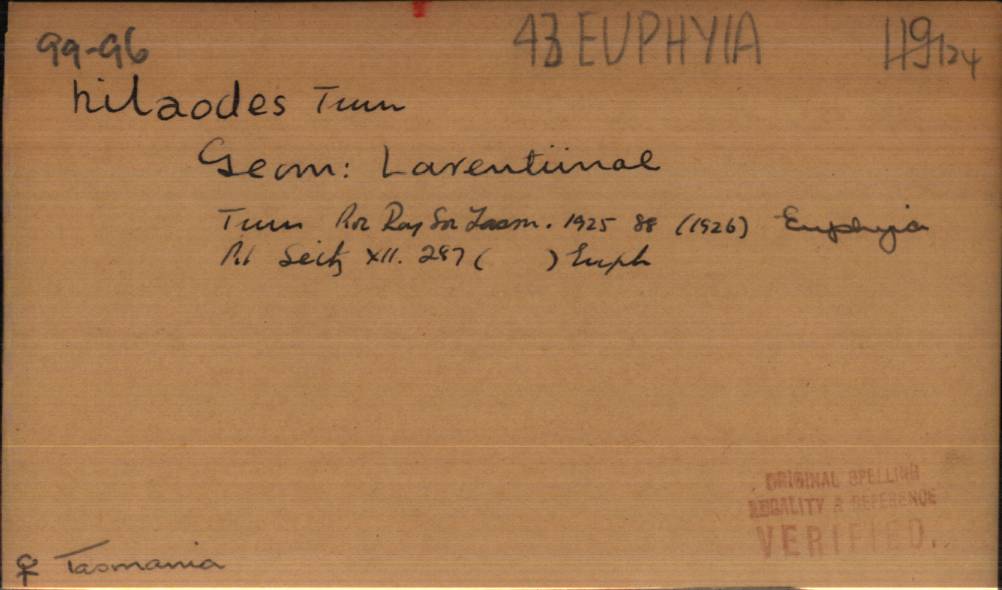 99-96 43 EUPHYIA 119124
hilaodes Turn
Geom: Larentiinae
Turn Roy Soc Tasm. 1925 88 (1926) Euphyia
Seitz XII. 287 ( ) Euph
ORIGINAL SPELLING
LOCALITY & REFERENCE
VERIFIED.
♀ Tasmania